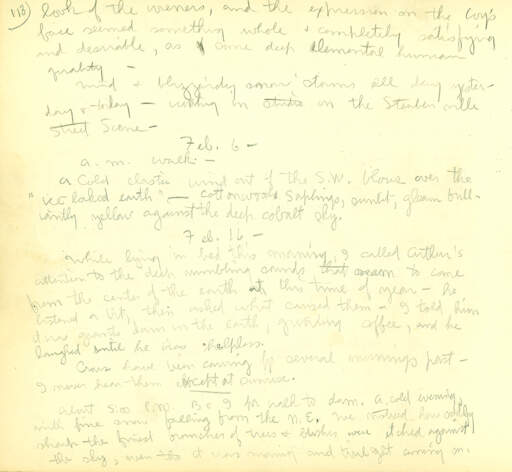 113) look of the weavers, and the expression on the boy's
face seemed something whole & completely satisfying
and desirable, as some deep elemental human
quality —
Wind & blizzardy snow storms all day yester-
day & today — working in studio on the Steuben ville
Street Scene —
Feb. 6 —
a.m. walk —
a cold clear wind out of the S.W. blows over the
"ice locked earth" — cottonwood saplings, sunlit, gleam brill-
iantly yellow against the deep cobalt sky.
Feb. 16 —
While lying in bed this morning, I called Arthur's
attention to the deep rumbling sounds that seem to come
from the center of the earth at this time of year — he
listened a bit, then asked what caused them — I told him
it was giants down in the earth, grinding coffee, and he
laughed until he was helpless.
Crows have been cawing for several mornings past —
I never hear them except at sunrise.
about 5:00 P.M. B & I for walk to dam. A cold evening
with fine snow falling from the N.E. We noticed how oddly
sharp the finest branches of trees & bushes were etched against
the sky; even tho it was snowing and twilight coming on.